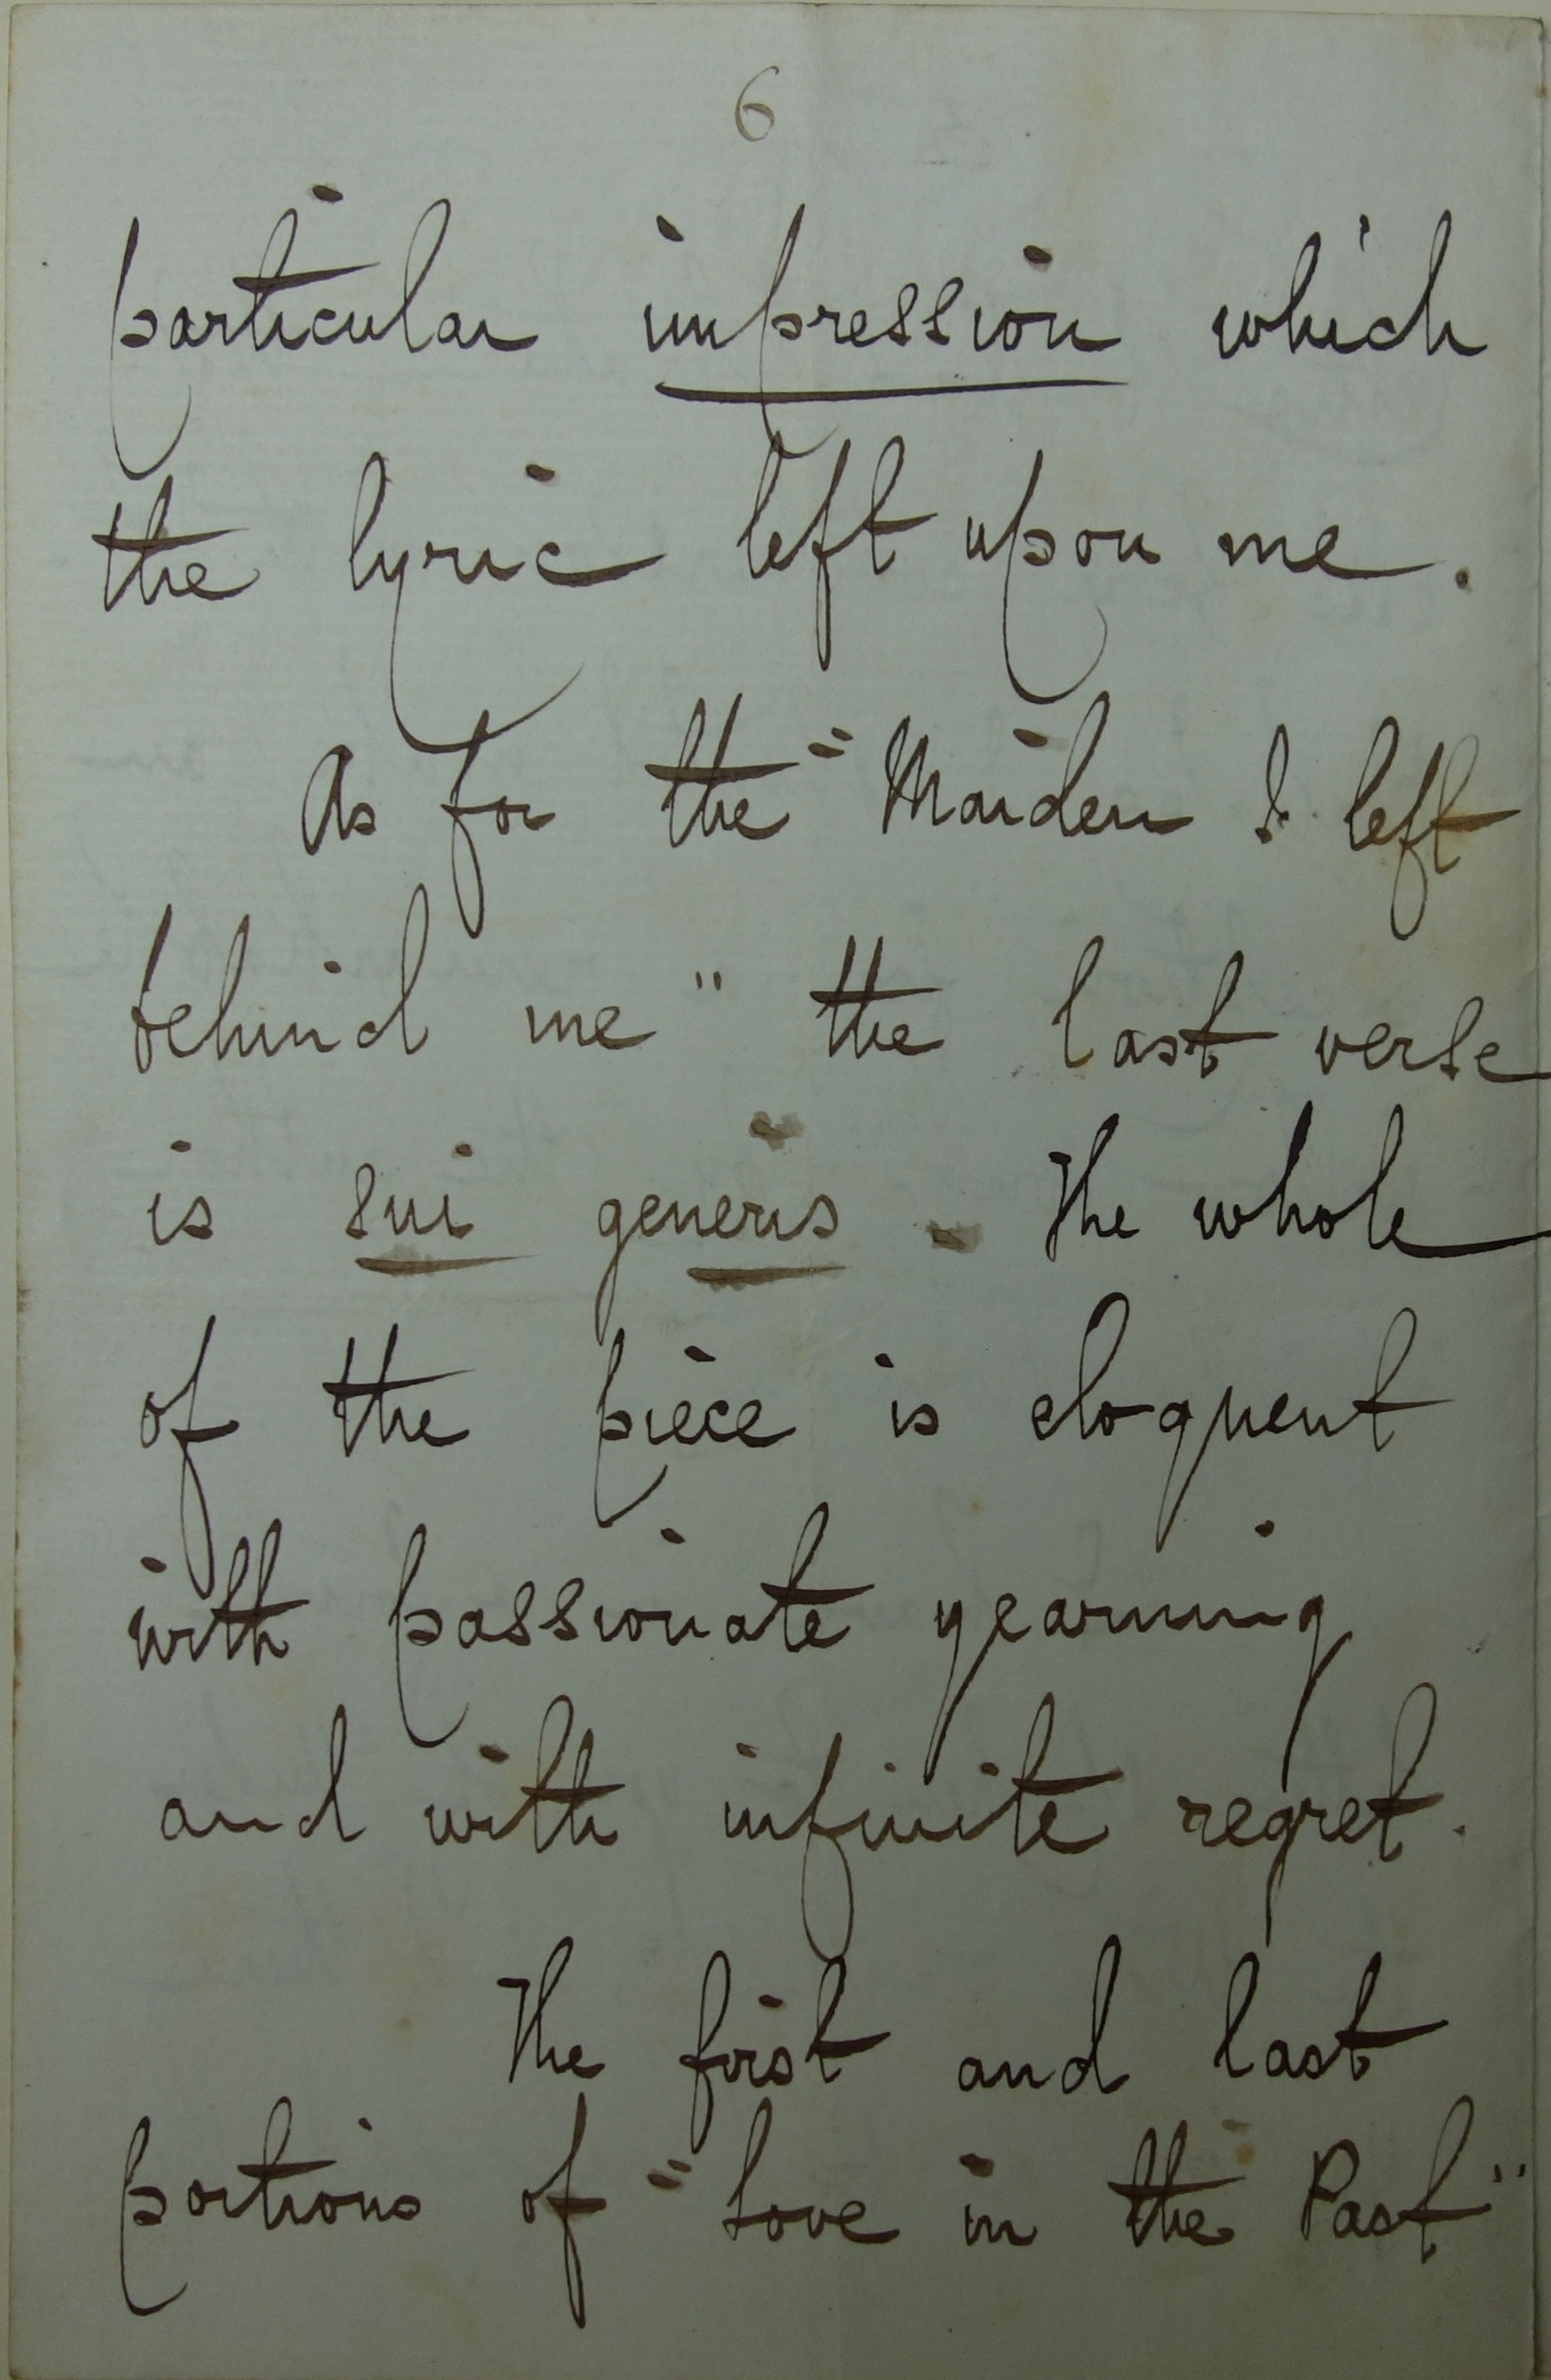 6
particular impression which
the lyric left upon me.
As for the "Maiden I left
behind me" the last verse
is sui generis. The whole
of the piece is eloquent
with passionate yearning
and with infinite regret.
The first and last
portions of "Love in the Past"